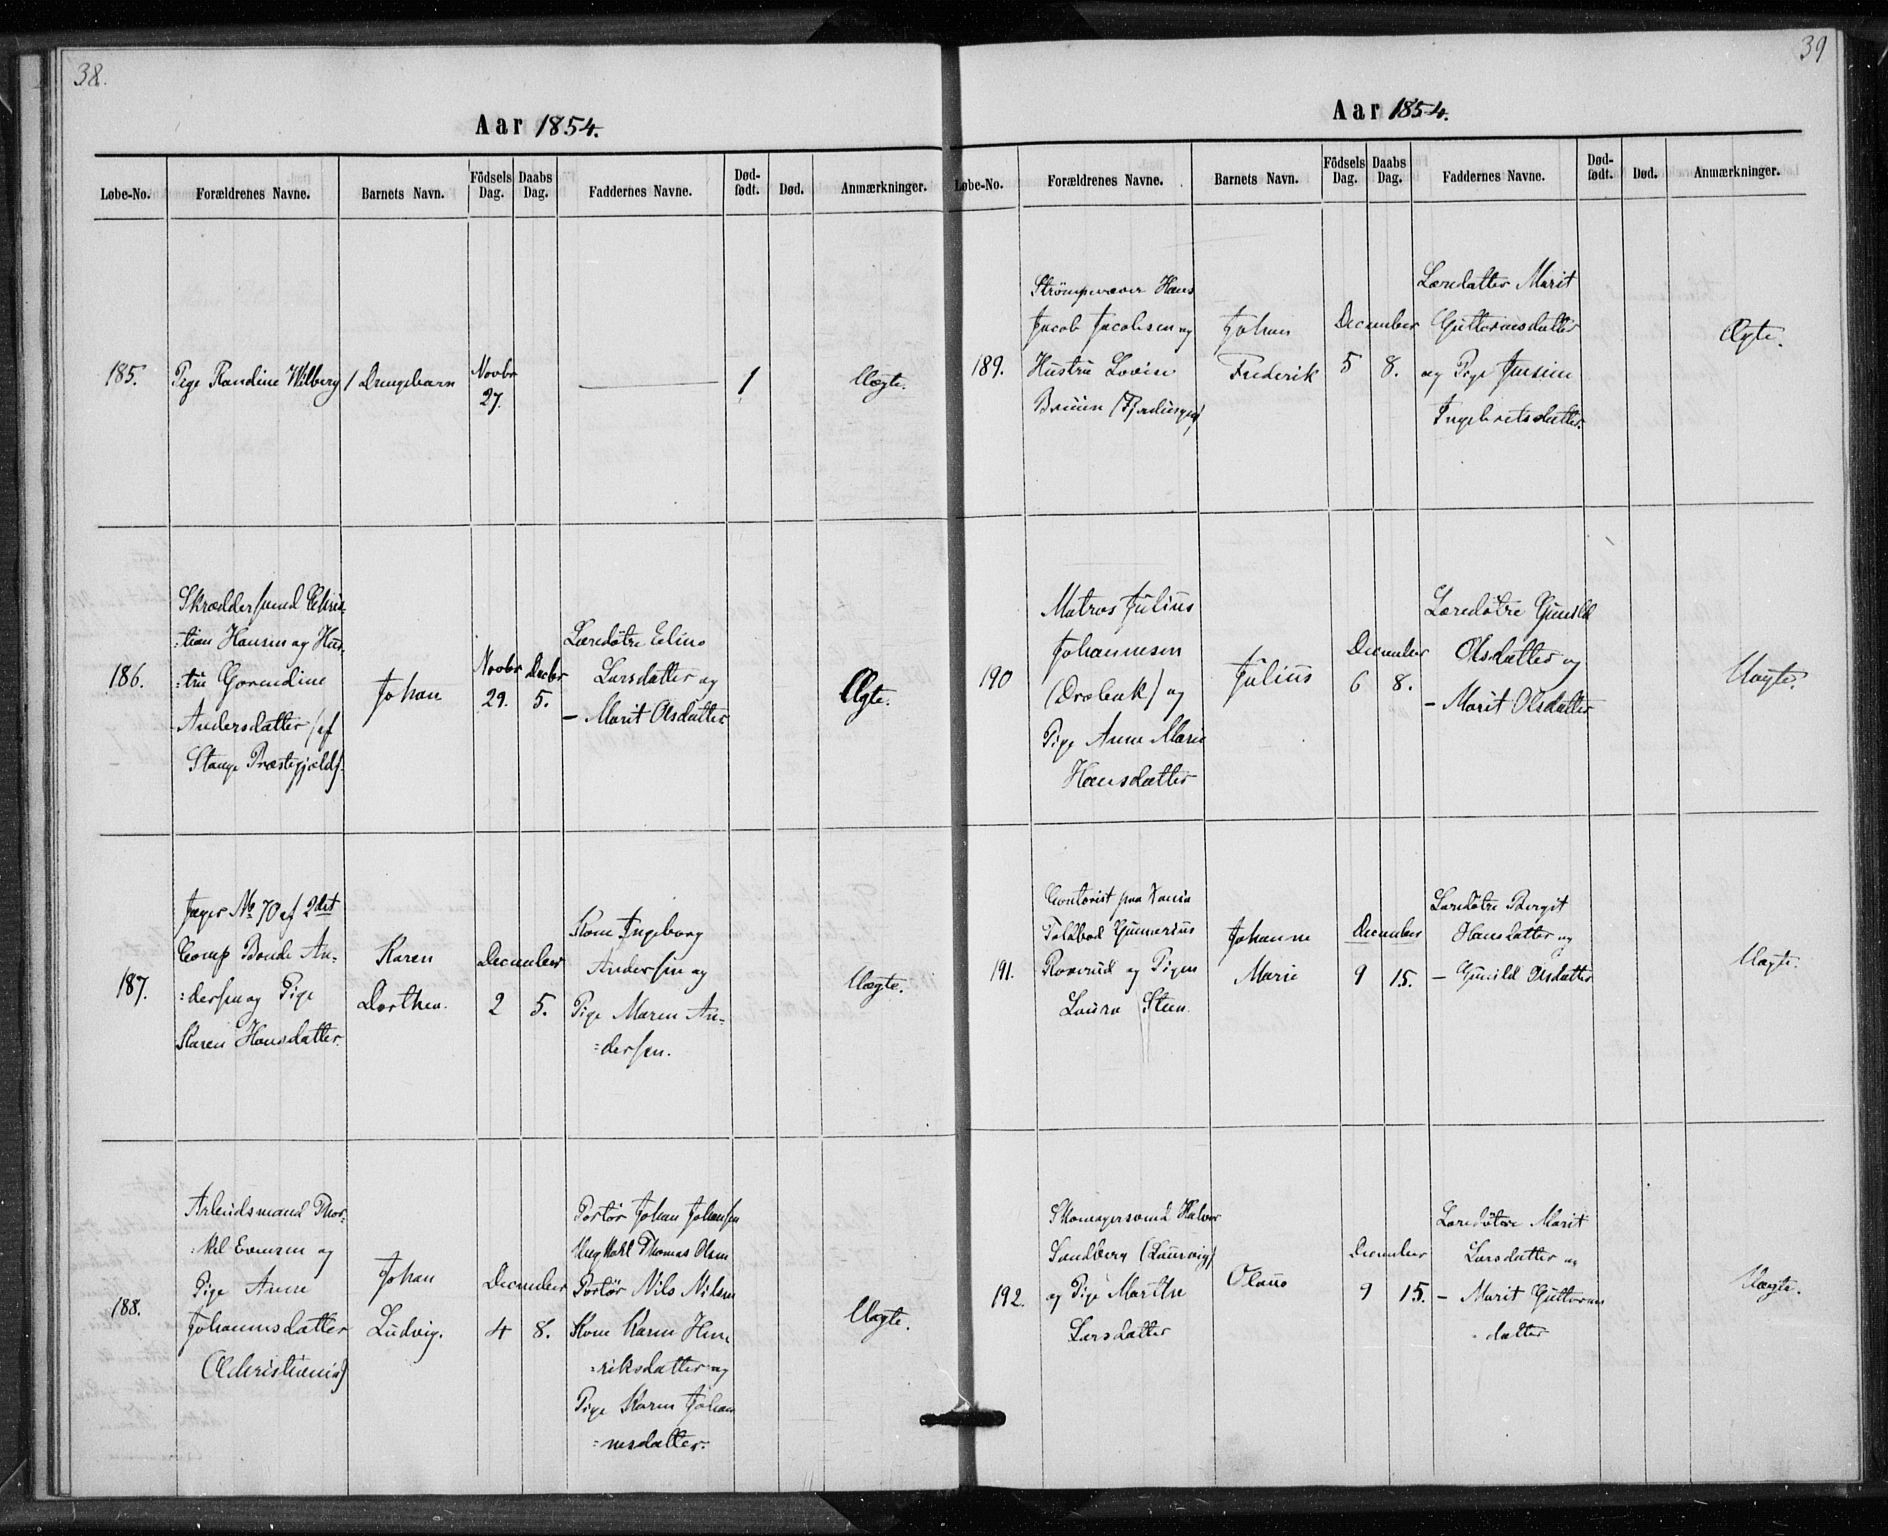 38.
Aar 1854.
Løbe-No. Forældrenes Navne. Barnets Navn. Födsels Dag. Daabs Dag. Faddernes Navne. Død-födt. Død. Anmærkninger.
185. Pige Randine Wilberg 1 Drengebarn Novbr 27. — 1 Uægte.
Skræddersvend Chris-
-tian Hansen og Hus-
-tru Gorendine
Andersdatter (af
Stange Præstegjeld).
186.
Johan
Novbr Decbr
29. 5.
Læredøtre Eline
Larsdatter og
- Marit Olsdatter
Ægte.
Jæger No 70 af 2det
Comp Bonde An-
=dersen og Pige
Karen Hansdatter.
187.
Karen
Dorthea.
December
2 5.
Kone Ingeborg
Andersen og
Pige Maren An-
=dersen.
Uægte.
Arbeidsmand Thor-
-kel Evensen og
Pige Anne
Johannesdatter
(Christiania)
188.
Johan
Ludvig.
December
4 8.
Portør Johan Johansen
Thomas Olsen
Portør Nils Nilsen
Kone Karen Hen
=riksdatter og
Pige Karen Johan
=nesdatter.
Uægte.
39
Aar 1854.
Løbe-No. Forældrenes Navne. Barnets Navn. Födsels Dag. Daabs Dag. Faddernes Navne. Død-födt. Død. Anmærkninger.
Strömpevæver Hans
Jacob Jacobsen og
Hustru Lovise
Bruun
189.
Johan
Frederik
December
5 8.
Læredatter Marit
Guttormsdatter
og Pige Jensine
Ingebretsdatter.
Ægte.
Matros Julius
Johannesen
(Drøbak) og
Pige Anne Marie
Hansdatter
190
Julius
December
6 8.
Læredøtre Gunild
Olsdatter og
- Marit Olsdatter
Uægte.
Contorist paa Xania
Toldbod Gunnerius
Roverud og Pigen
Laura Steen.
191.
Johanne
Marie
December
9 15.
Læredøtre Bergit
Hansdatter og
- Gunild Olsdatter
Uægte.
Skomagersvend Halvor
Sandberg (Laurvig)
og Pige Marthe
Larsdatter
192.
Olaus
December
9 15.
Læredøtre Marit
Larsdatter og
- Marit Guttorms
- datter
Uægte.